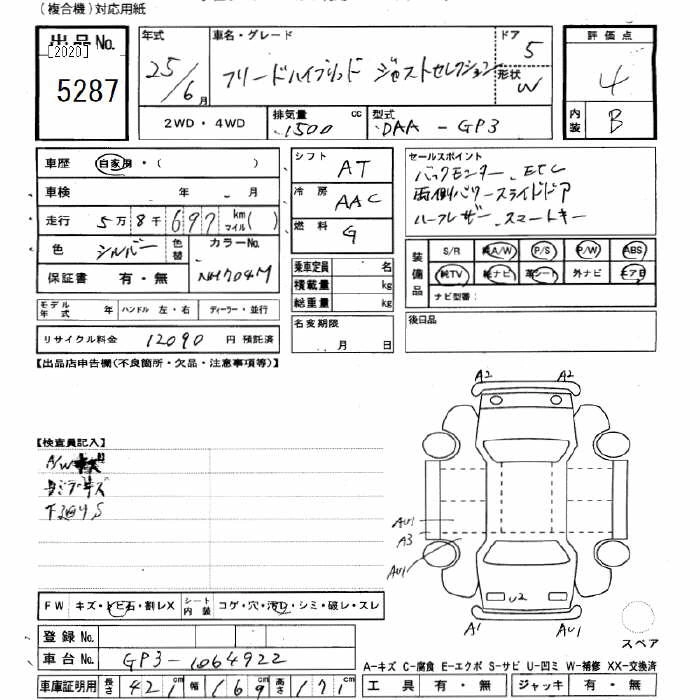 (複合機)対応用紙
出品No.
[2020]
5287
年式
25/6月
車名・グレード
フリードハイブリッド ジャストセレクション
ドア
5
形状
W
評価点
4
内装
B
2WD・4WD
排気量
1500 cc
型式
DAA-GP3
車歴 自家用・( )
車検 年 月
走行 5万8千697 km マイル( )
色 シルバー
色替
カラーNo.
NH704M
保証書 有・無
モデル年式 年 ハンドル 左・右 ディーラー・並行
リサイクル料金 12090 円 預託済
シフト AT
冷房 AAC
燃料 G
乗車定員 名
積載量 kg
総重量 kg
名変期限
月 日
セールスポイント
バックモニター、ETC
両側パワースライドドア
ハーフレザー スマートキー
装備品
S/R 純A/W P/S P/W ABS
純TV 純ナビ 革シート 外ナビ エアB
ナビ型番:
後日品
【出品店申告欄(不良箇所・欠品・注意事項等)】
【検査員記入】
A/Wキズ
キズ
下廻りS
A2 A2
AU1
A3
AU1
U2
A1 AU1
スペア
FW キズ・トビ石・割レX シート内装 コゲ・穴・汚D・シミ・破レ・スレ
登録No.
車台No. GP3-1064922
車庫証明用 長さ 421cm 幅 169cm 高さ 171cm
A-キズ C-腐食 E-エクボ S-サビ U-凹ミ W-補修 XX-交換済
工具 有・無 ジャッキ 有・無